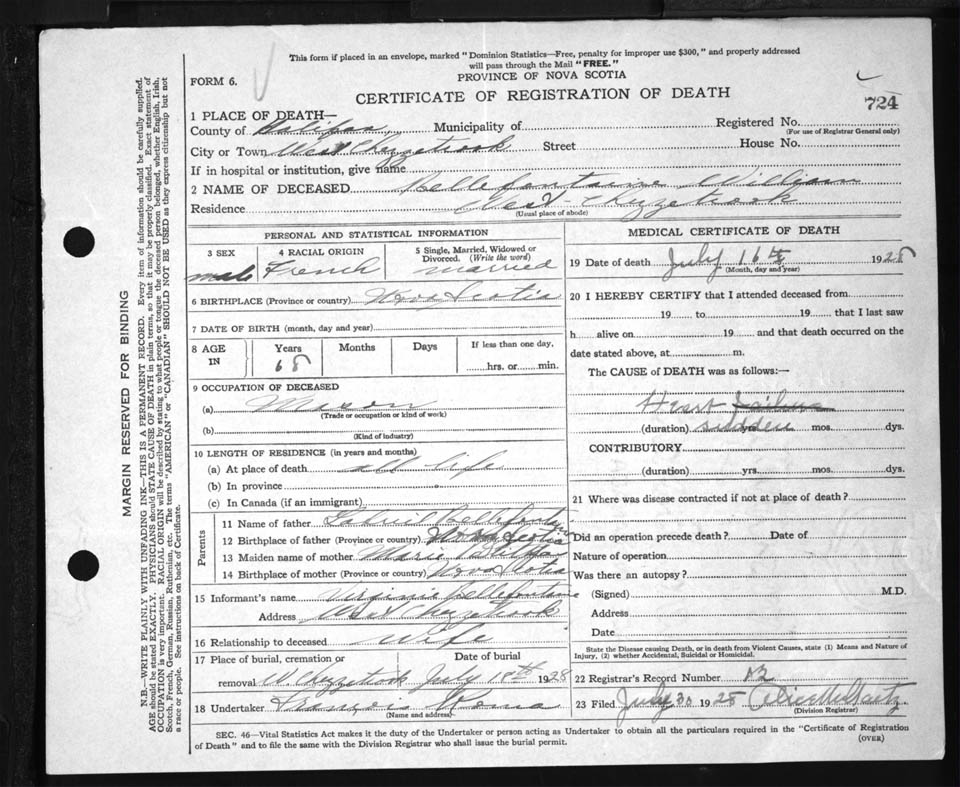 This form if placed in an envelope, marked "Dominion Statistics—Free, penalty for improper use $300," and properly addressed
will pass through the Mail "FREE."
FORM 6.
PROVINCE OF NOVA SCOTIA
CERTIFICATE OF REGISTRATION OF DEATH
724
1 PLACE OF DEATH—
County of Halifax Municipality of
Registered No.
(For use of Registrar General only)
City or Town West Chezzetcook Street House No.
If in hospital or institution, give name
2 NAME OF DECEASED Bellefontaine William
Residence West Chezzetcook
(Usual place of abode)
PERSONAL AND STATISTICAL INFORMATION
3 SEX
male
4 RACIAL ORIGIN
French
5 Single, Married, Widowed or
Divorced. (Write the word)
married
6 BIRTHPLACE (Province or country) Nova Scotia
7 DATE OF BIRTH (month, day and year)
8 AGE
IN
Years
68
Months
Days
If less than one day.
hrs. or min.
9 OCCUPATION OF DECEASED
(a) Mason
(Trade or occupation or kind of work)
(b)
(Kind of industry)
10 LENGTH OF RESIDENCE (in years and months)
(a) At place of death all life
(b) In province
(c) In Canada (if an immigrant)
Parents
11 Name of father Gabriel Bellefontaine
12 Birthplace of father (Province or country) Nova Scotia
13 Maiden name of mother Marie
14 Birthplace of mother (Province or country) Nova Scotia
15 Informant's name Virginie Bellefontaine
Address West Chezzetcook
16 Relationship to deceased wife
17 Place of burial, cremation or
removal W. Chezzetcook
Date of burial
July 18th 1928
18 Undertaker Francois Roma
(Name and address)
MEDICAL CERTIFICATE OF DEATH
19 Date of death July 16th 1928
(Month, day and year)
20 I HEREBY CERTIFY that I attended deceased from
19 to 19 that I last saw
h alive on 19 and that death occurred on the
date stated above, at m.
The CAUSE of DEATH was as follows:—
Heart failure
(duration) sudden yrs. mos. dys.
CONTRIBUTORY
(duration) yrs. mos. dys.
21 Where was disease contracted if not at place of death?
Did an operation precede death? Date of
Nature of operation
Was there an autopsy?
(Signed) M.D.
Address
Date
State the Disease causing Death, or in death from Violent Causes, state (1) Means and Nature of
Injury, (2) whether Accidental, Suicidal or Homicidal.
22 Registrar's Record Number 12
23 Filed July 30 1928
(Division Registrar)
SEC. 46—Vital Statistics Act makes it the duty of the Undertaker or person acting as Undertaker to obtain all the particulars required in the "Certificate of Registration
of Death" and to file the same with the Division Registrar who shall issue the burial permit.
(OVER)
MARGIN RESERVED FOR BINDING
N.B.—WRITE PLAINLY WITH UNFADING INK—THIS IS A PERMANENT RECORD. Every item of information should be carefully supplied.
AGE should be stated EXACTLY. PHYSICIANS should STATE CAUSE OF DEATH in plain terms, so that it may be properly classified. Exact statement of
OCCUPATION is very important. RACIAL ORIGIN will be described by stating to what people or tongue the deceased person belonged, whether English, Irish,
Scotch, French, German, Russian, Ruthenian, etc. The terms "AMERICAN" or "CANADIAN" SHOULD NOT BE USED as they express citizenship but not
a race or people. See instructions on back of Certificate.